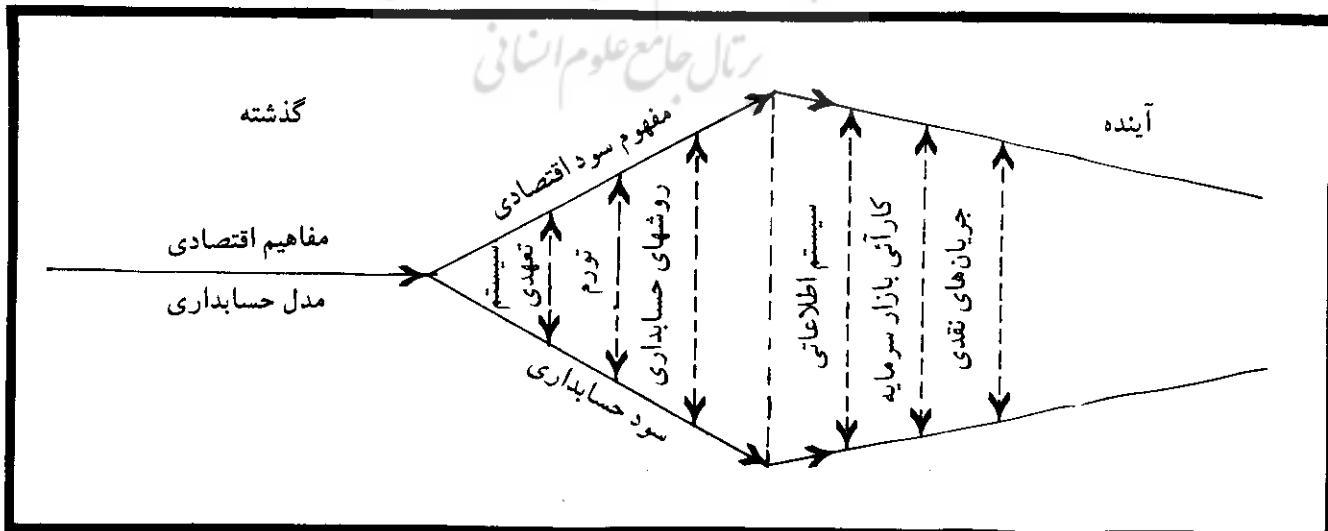 پرتال جامع علوم انسانی
گذشته
آینده
مفاهیم اقتصادی
مدل حسابداری
مفهوم سود اقتصادی
سود حسابداری
سیستم
تعهدی
تورم
روشهای حسابداری
سیستم اطلاعاتی
کارآئی بازار سرمایه
جریان‌های نقدی